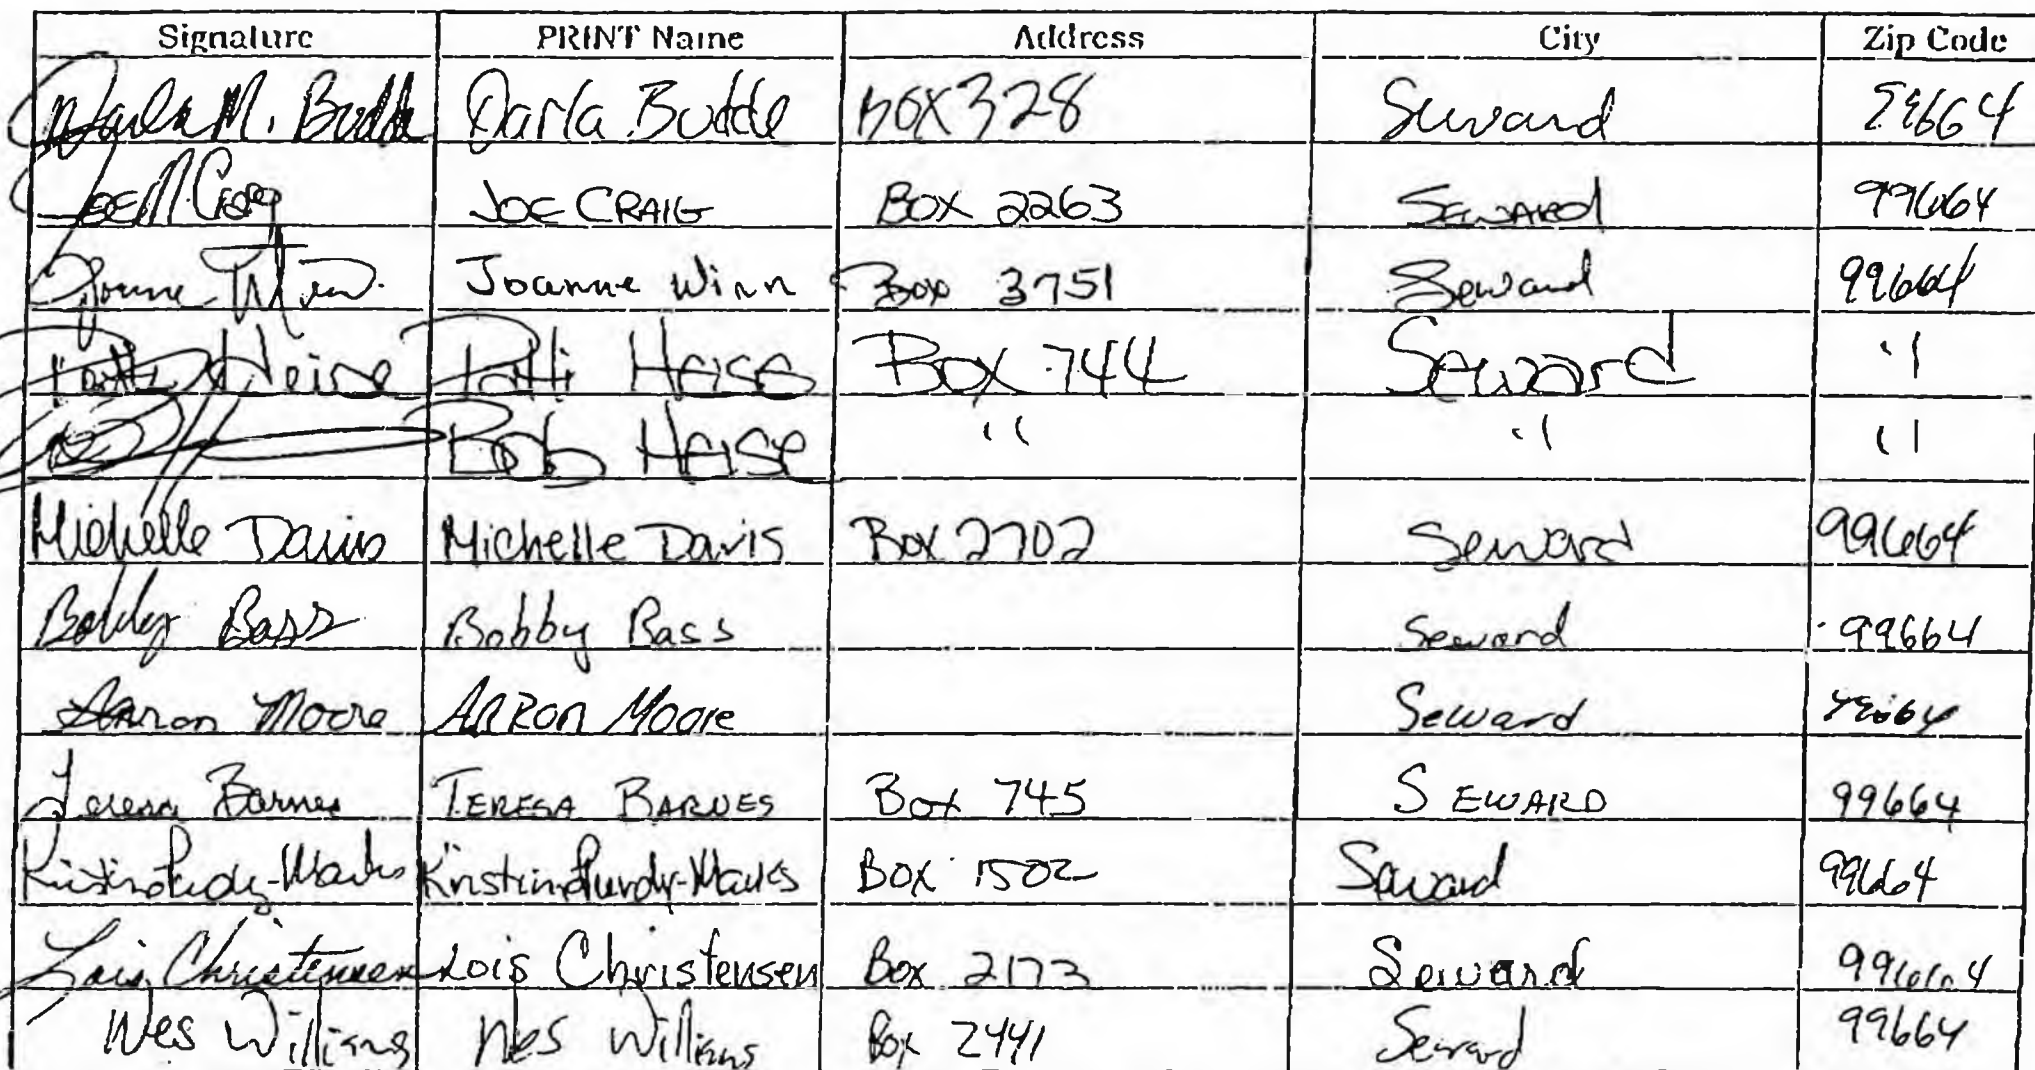 Signature PRINT Name Address City Zip Code
Darla M. Budde Darla Budde Box 328 Seward 99664
Joe M Craig JOE CRAIG BOX 2263 SEWARD 99664
Joanne Winn Box 3751 Seward 99664
Patti Heise Patti Heise Box 744 Seward "
Bob Heise " " "
Michelle Davis Michelle Davis Box 2702 Seward 99664
Bobby Bass Bobby Bass Seward 99664
Aaron Moore AARON Moore Seward 99664
Teresa Barnes TERESA BARNES Box 745 SEWARD 99664
Kristin Purdy-Marks Kristin Purdy-Marks Box 1502 Seward 99664
Lois Christensen Lois Christensen Box 2173 Seward 99664
Wes Williams Wes Williams Box 2441 Seward 99664